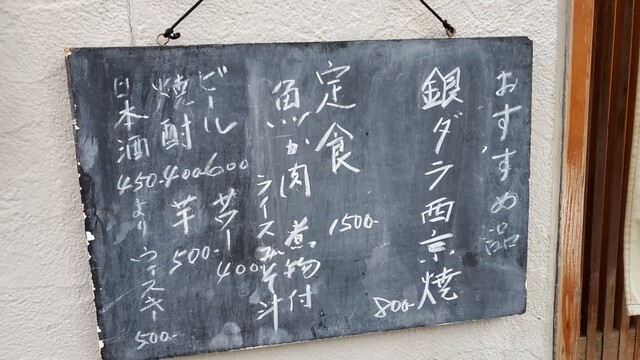 おすすめ品
銀ダラ西京焼
800-
定食
1500-
魚か肉 煮物付
ライス みそ汁
ビール 600
サワー 400
焼酎 400
芋 500-
日本酒 450-より
ウィスキー 500-